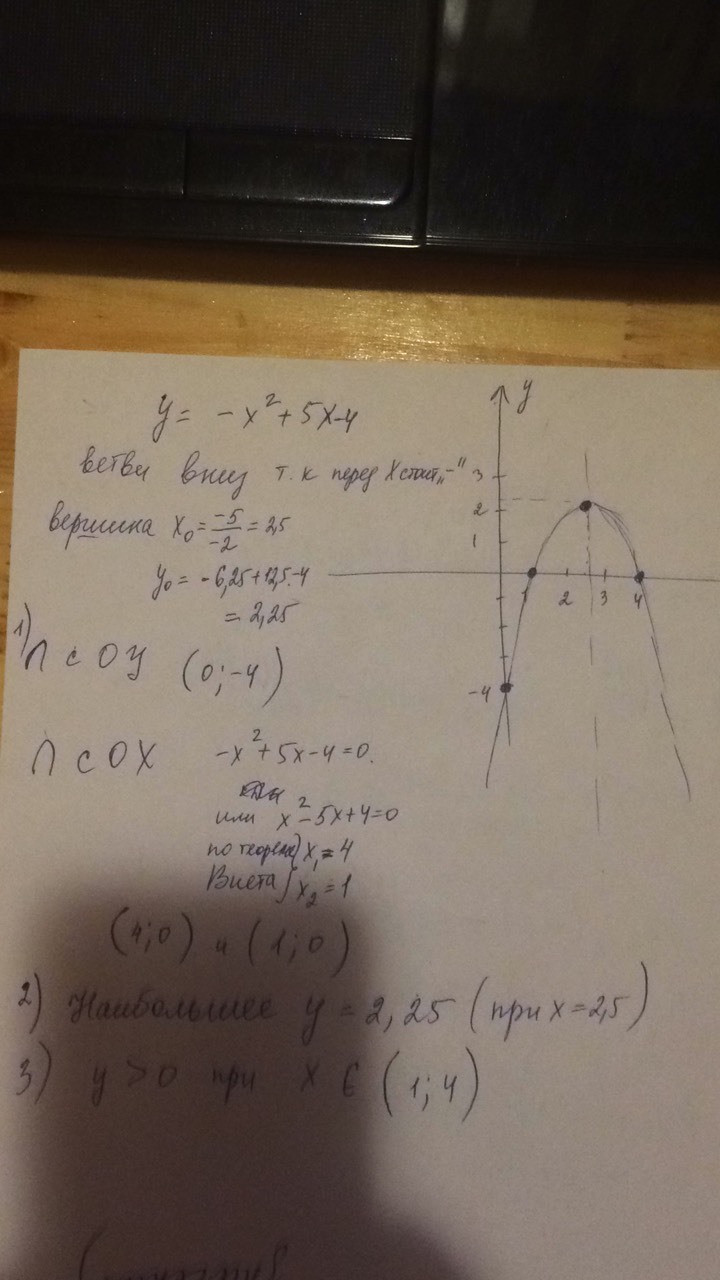 y = -x² + 5x-4
ветви вниз т.к перед x стоит „-"
вершина x₀ = -5/-2 = 2,5
y₀ = -6,25+12,5-4
= 2,25
1)
∩ с OY (0;-4)
∩ с OX -x²+5x-4=0.
или x²-5x+4=0
по теореме } x₁ = 4
Виета } x₂ = 1
(4;0) и (1;0)
2) Наибольшее y = 2,25 (при x=2,5)
3) y > 0 при x ∈ (1; 4)
y
3
2
1
1 2 3 4
-4